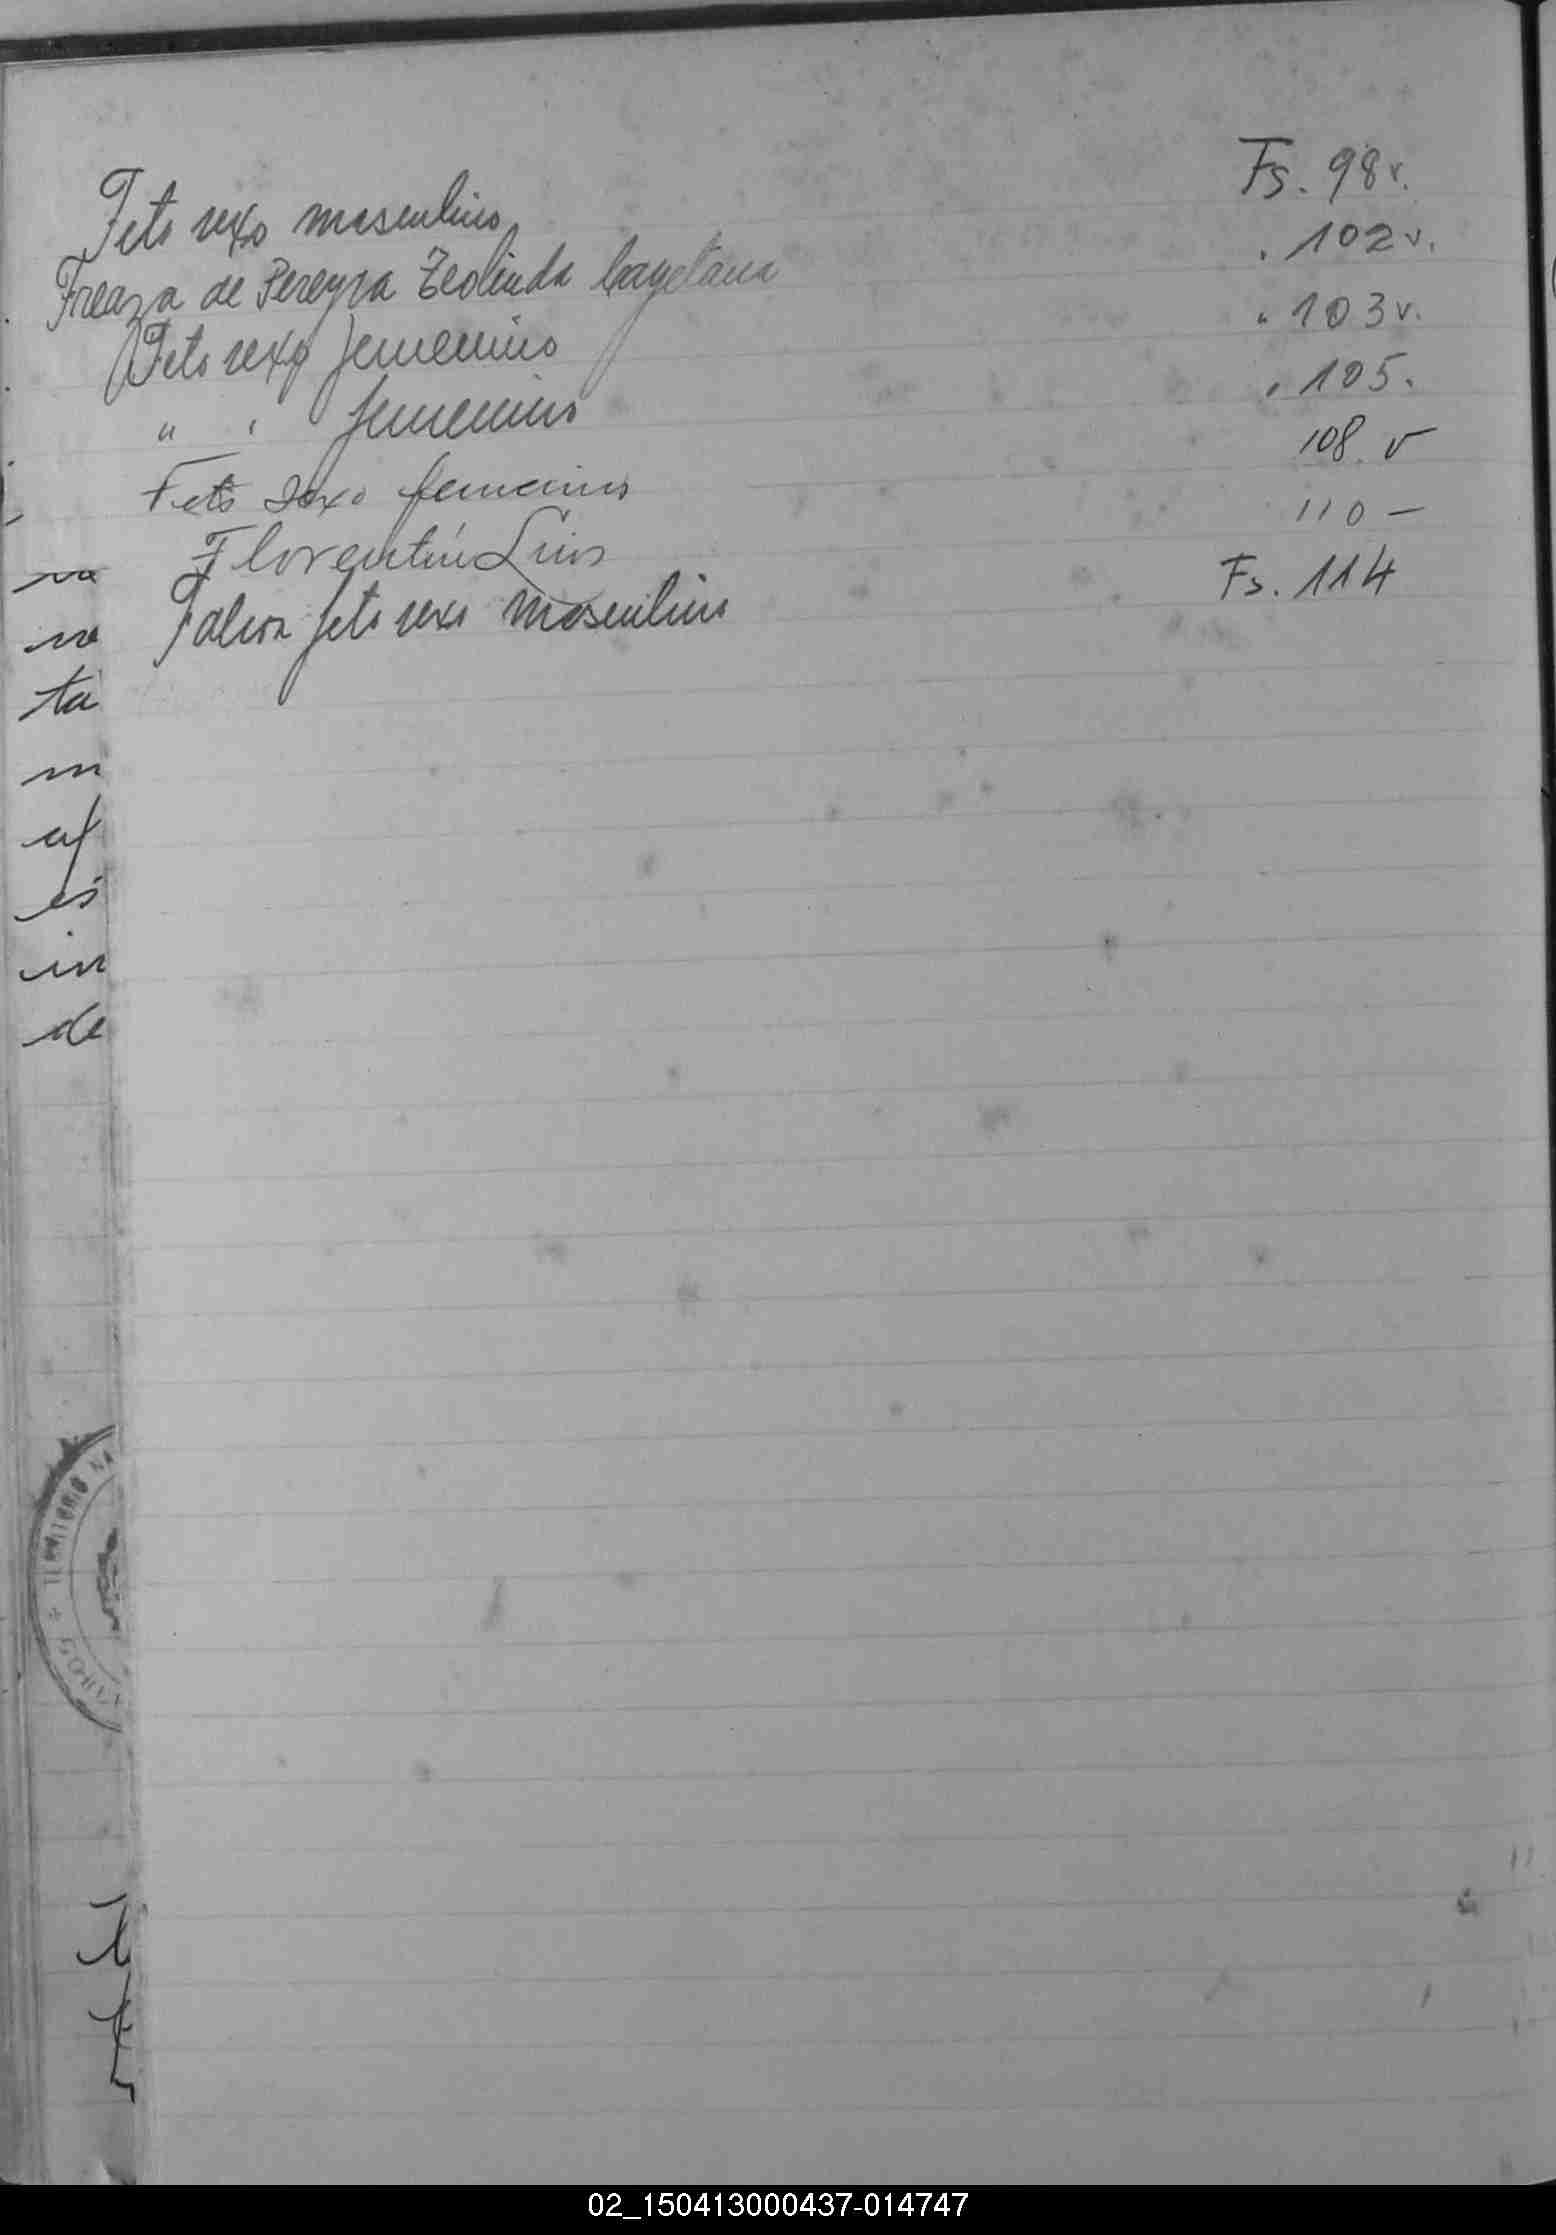 Feto sexo masculino Fs. 98 v.
Freaza de Pereyra Teolinda Cayetana " 102 v.
Feto sexo femenino " 103 v.
" " femenino " 105.
Feto sexo femenino 108. v
Florentín Luis 110 -
Falcon feto sexo masculino Fs. 114
na
no
ta
m
af
es
in
de
TERRITORIO NA
02_150413000437-014747